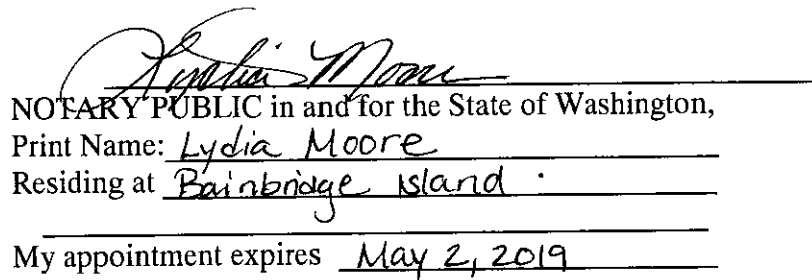 Moore
NOTARY PUBLIC in and for the State of Washington,
Print Name: Lydia Moore
Residing at Bainbridge Island
My appointment expires May 2, 2019